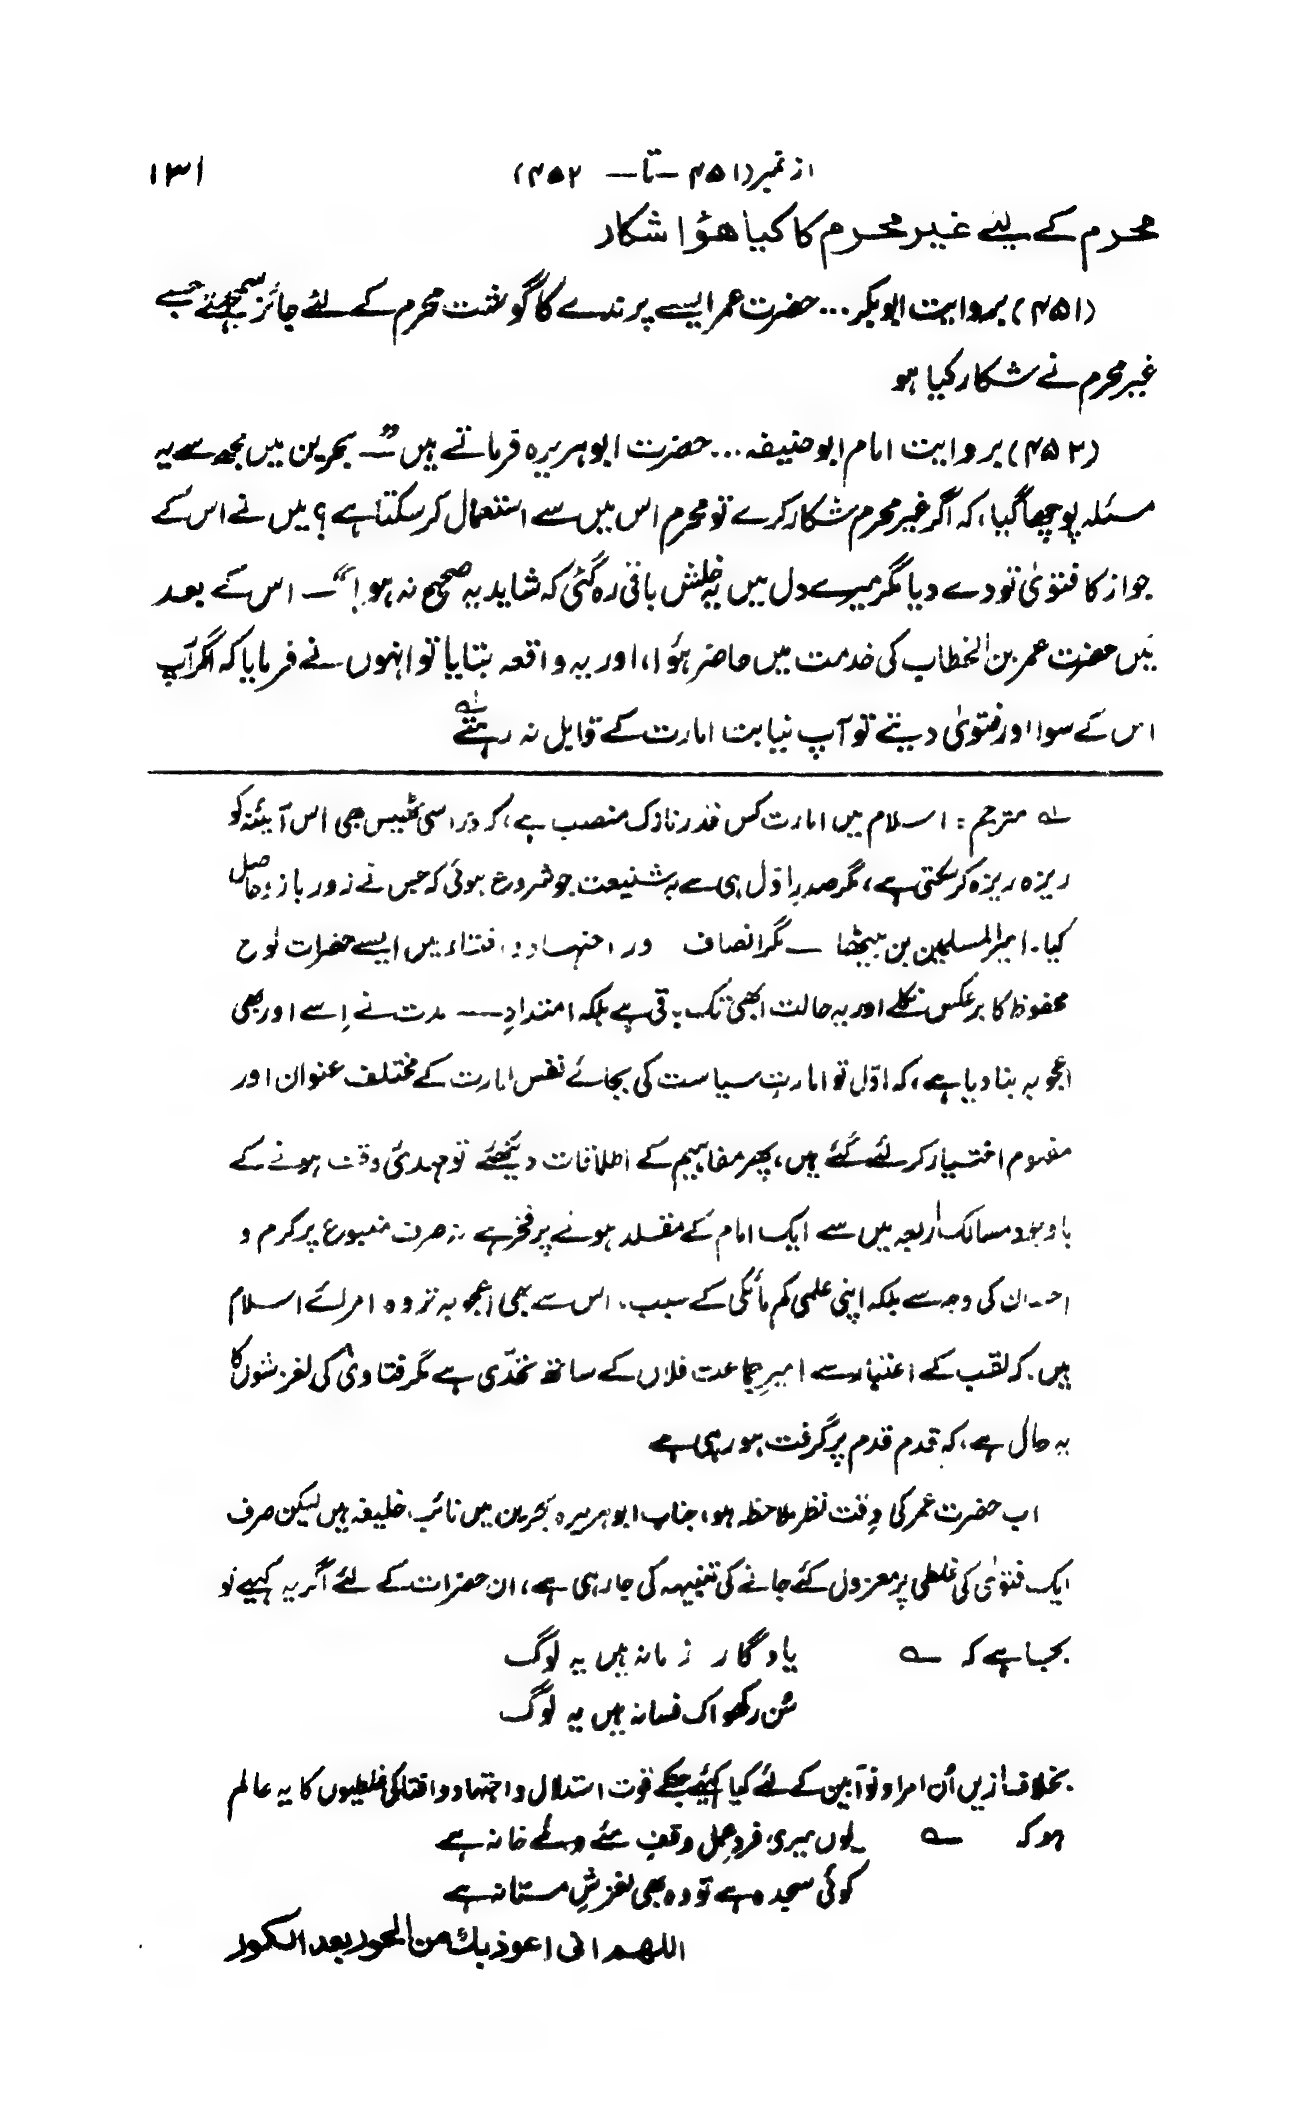 از نمبر (۴۵۱ – تا – ۴۵۲) ۱۳۱
محرم کے لیئے غیر محرم کا کیا ھؤا شکار
(۴۵۱) بروایت ابوبکر... حضرت عمر ایسے پرندے کا گوشت محرم کے لئے جائز سمجھتے جسے
غیر محرم نے شکار کیا ہو
(۴۵۲) بروایت امام ابوحنیفہ... حضرت ابوہریرہ فرماتے ہیں — ”بحرین میں مجھ سے یہ
مسئلہ پوچھا گیا، کہ اگر غیر محرم شکار کرے تو محرم اس میں سے استعمال کر سکتا ہے؟ میں نے اس کے
جواز کا فتویٰ تو دے دیا مگر میرے دل میں یہ خلش باقی رہ گئی کہ شاید یہ صحیح نہ ہو!“ — اس کے بعد
میں حضرت عمر بن الخطاب کی خدمت میں حاضر ہؤا، اور یہ واقعہ بتایا تو انہوں نے فرمایا کہ اگر آپ
اس کے سوا اور فتویٰ دیتے تو آپ نیابت امارت کے قابل نہ رہتے لہ
لہ مترجم: اسلام میں امارت کس قدر نازک منصب ہے، کہ ذرا سی ٹھیس بھی اس آبگینہ کو
ریزہ ریزہ کر سکتی ہے، مگر صدرِ اوّل ہی سے یہ شنیعت جو شروع ہوئی کہ جس نے زور بازو حاصل
کیا۔ امیر المسلمین بن بیٹھا — مگر انصاف ور اجتہاد و افتاء میں ایسے حضرات لوح
محفوظ کا برعکس نکلے اور یہ حالت ابھی تک باقی ہے بلکہ امتدادِ — مدت نے اِسے اور بھی
اعجوبہ بنا دیا ہے، کہ اوّل تو امارتِ سیاست کی بجائے نفس امارت کے مختلف عنوان اور
مفہوم اختیار کر لئے گئے ہیں، پھر مفاہیم کے اطلاقات دیکھئے تو مہدیٔ وقت ہونے کے
باوجود مسالک اربعہ میں سے ایک امام کے مقلد ہونے پر فخر ہے نہ صرف متبوع پر کرم و
احسان کی وجہ سے بلکہ اپنی علمی کم مائگی کے سبب۔ اس سے بھی اعجوبہ تر وہ امرائے اسلام
ہیں۔ کہ لقب کے اعتبار سے امیرِ جماعت فلاں کے ساتھ تحدّی ہے مگر فتاویٰ کی لغزشوں کا
یہ حال ہے، کہ قدم قدم پر گرفت ہو رہی ہے
اب حضرت عمر کی دِقت نظر ملاحظہ ہو، جناب ابوہریرہ بحرین میں نائب خلیفہ ہیں لیکن صرف
ایک فتویٰ کی غلطی پر معزول کئے جانے کی تنبیہہ کی جا رہی ہے، ان حضرات کے لئے اگر یہ کہیے تو
بجا ہے کہ ؎ یادگار زمانہ ہیں یہ لوگ
سُن رکھو اک فسانہ ہیں یہ لوگ
بخلاف ازیں اُن امراء توّابین کے لئے کیا کہیئے جنکے قوت استدلال و اجتہاد و افتا کی غلطیوں کا یہ عالم
ہو کہ ؎ یوں میری فردِ عمل وقفِ مئے و مے خانہ ہے
کوئی سجدہ ہے تو وہ بھی لغزشِ مستانہ ہے
اللھم انی اعوذ بك من الحور بعد الکور